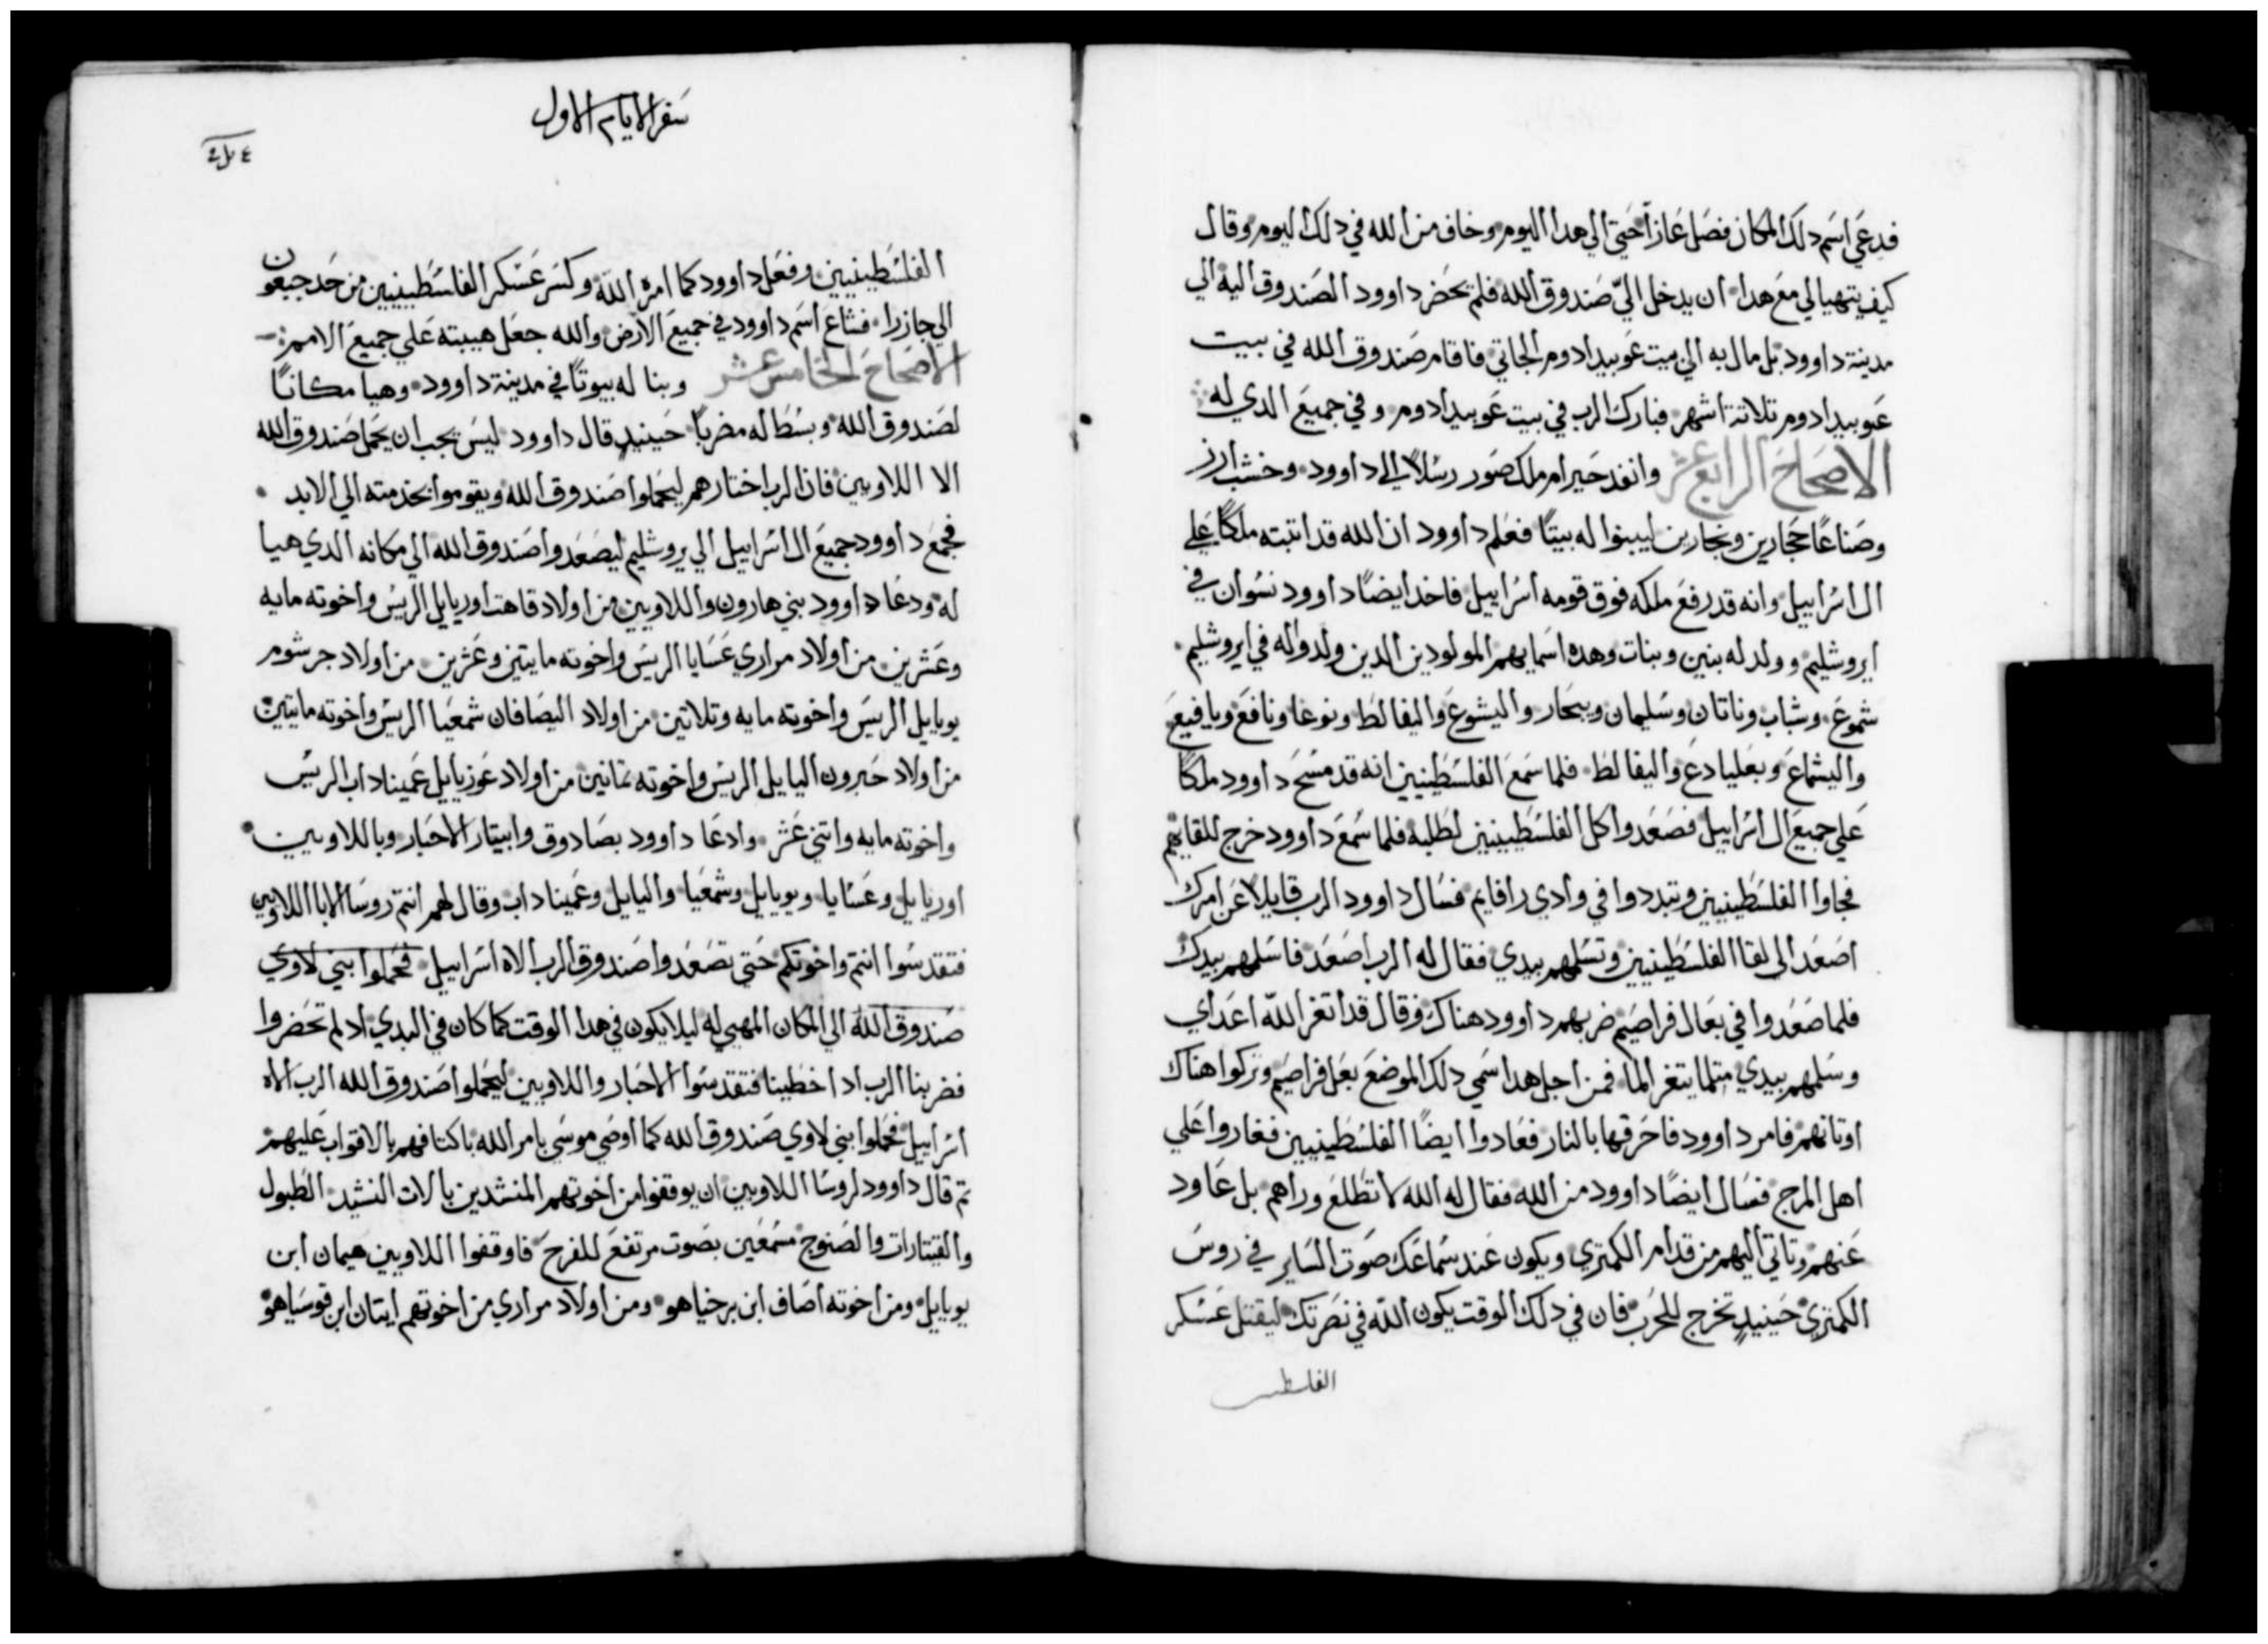 فدعي اسم دلك المكان فصل عازا حتي الي هدا اليوم وخاف من الله في دلك اليوم وقال
كيف يتهيا لي مع هدا ان يدخل اليّ صندوق الله فلم يحضر داوود الصندوق اليه الي
مدينة داوود بل مال به الي بيت عوبيدادوم الجاتي فاقام صندوق الله في بيت
عوبيدادوم تلاتة اشهر فبارك الرب في بيت عوبيدادوم وفي جميع الدي له
الاصحاح الرابع عشر وانفد حيرام ملك صور رسلاً الي داوود وخشب ارز
وصناعًا حجارين ونجارين ليبنوا له بيتًا فعلم داوود ان الله قد اتبته ملكًا علي
ال اسراييل وانه قد رفع ملكه فوق قومه اسراييل فاخد ايضًا داوود نسوان في
ايروشليم وولد له بنين وبنات وهده اسمايهم المولودين الدين ولدوا له في ايروشليم
شموع وشباب وناتان وسليمان ويبحار واليشوع واليفالط ونوغا ونافع ويافيع
واليشماع وبعليادع واليفالط فلما سمع الفلسطينيين انه قد مسح داوود ملكًا
علي جميع ال اسراييل فصعدوا كل الفلسطينيين لطلبه فلما سمع داوود خرج للقايهم
فجاوا الفلسطينيين وتبددوا في وادي رافايم فسال داوود الرب قايلا عن امرك
اصعد الي لقا الفلسطينيين وتسلمهم بيدي فقال له الرب اصعد فاسلمهم بيدك
فلما صعدوا في بعال فراصيم ضربهم داوود هناك وقال قد اتغر اللّه اعداي
وسلمهم بيدي متلما يتغر الما فمن اجل هدا سمي دلك الموضع بعل فراصيم وتركوا هناك
اوتانهم فامر داوود فاحرقها بالنار فعادوا ايضًا الفلسطينيين فغاروا علي
اهل المرج فسال ايضًا داوود من الله فقال له الله لا تطلع وراهم بل عاود
عنهم وتاتي اليهم من قدام الكمتري ويكون عند سماعك صوت الساير في روس
الكمتري حينيدٍ تخرج للحرب فان في دلك الوقت يكون اللّه في نصرتك ليقتل عسكر
الفلسطين
سفر الايام الاول
الفلسطينيين وفعل داوود كما امره اللّه وكسر عسكر الفلسطينيين من حد جبعون
الي جازرا فشاع اسم داوود في جميع الارض والله جعل هيبته علي جميع الامم
الاصحاح الخامس عشر وبنا له بيوتًا في مدينة داوود وهيا مكانًا
لصندوق الله وبسط له مضربًا حينيدٍ قال داوود ليس يجب ان يحمل صندوق الله
الا اللاويين فان الرب اختارهم ليحملوا صندوق الله ويقوموا بخدمته الي الابد
فجمع داوود جميع ال اسراييل الي يروشليم ليصعدوا صندوق الله الي مكانه الدي هيا
له ودعا داوود بني هارون واللاويين من اولاد قاهت اوريايل الريس واخوته مايه
وعشرين من اولاد مراري عسايا الريس واخوته مايتين وعشرين من اولاد جرشوم
يويايل الريس واخوته مايه وتلاتين من اولاد اليصافان شمعيا الريس واخوته مايتين
من اولاد حبرون اليايل الريس واخوته تمانين من اولاد عوزيايل عميناداب الريس
واخوته مايه واتني عشر وادعا داوود بصادوق وابيتار الاحبار وباللاويين
اوريايل وعسايا ويويايل وشمعيا واليايل وعميناداب وقال لهم انتم روسا الابا اللاويين
فتقدسوا انتم واخوتكم حتي تصعدوا صندوق الرب الاه اسراييل فحملوا بني لاوي
صندوق الله الي المكان المهيي له ليلا يكون في هدا الوقت كما كان في البدي اد لم تحضروا
فضربنا الرب اد اخطينا فتقدسوا الاحبار واللاويين ليحملوا صندوق الله الرب الاه
اسراييل فحملوا بني لاوي صندوق الله كما اوصي موسي بامر الله باكتافهم بالاقواب عليهم
تم قال داوود لروسا اللاويين ان يوقفوا من اخوتهم المنشدين بالات النشيد الطبول
والقيتارات والصنوج مسمعين بصوت مرتفع للفرح فاوقفوا اللاويين هيمان ابن
يويايل ومن اخوته اصاف ابن برخياهو ومن اولاد مراري من اخوتهم ايتان ابن قوسياهو